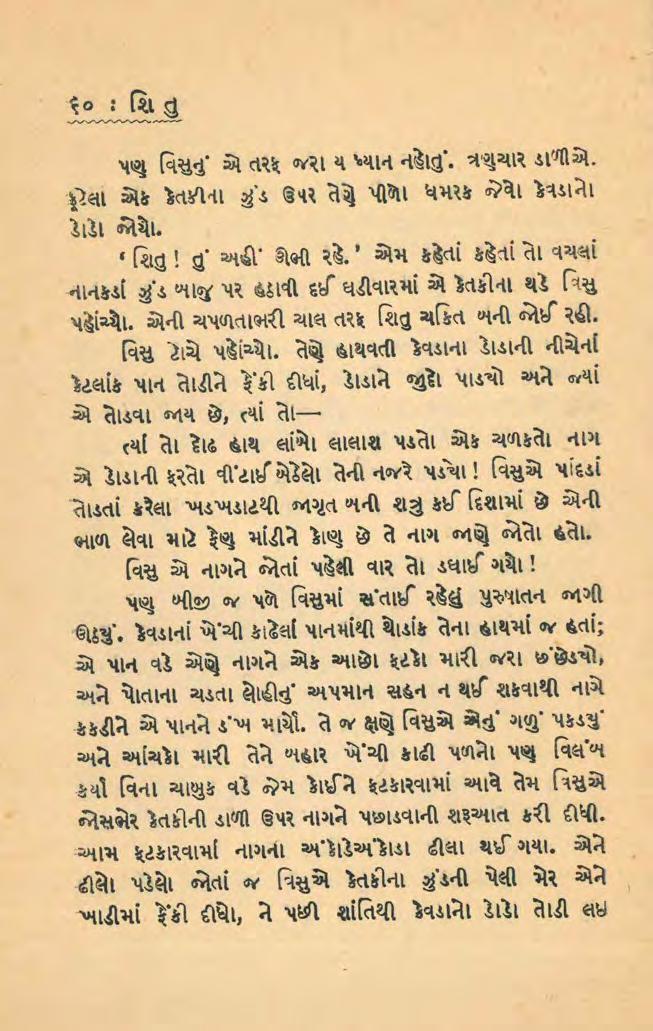 ૬૦ : શિ તુ
પણ વિસુનું એ તરફ જરા ય ધ્યાન નહોતું. ત્રણચાર ડાળીએ.
ફૂટેલા એક કેતકીના ઝુંડ ઉપર તેણે પીળા ધમરક જેવો કેવડાનો
ડોડો જોયો.
‘ શિતુ ! તું અહીં ઊભી રહે. ’ એમ કહેતાં કહેતાં તો વચલાં
નાનકડાં ઝુંડ બાજુ પર હઠાવી દઈ ઘડીવારમાં એ કેતકીના થડે વિસુ
પહોંચ્યો. એની ચપળતાભરી ચાલ તરફ શિતુ ચકિત બની જોઈ રહી.
વિસુ ટોચે પહોંચ્યો. તેણે હાથવતી કેવડાના ડોડાની નીચેનાં
કેટલાંક પાન તોડીને ફેંકી દીધાં, ડોડાને જુદો પાડ્યો અને જ્યાં
એ તોડવા જાય છે, ત્યાં તો—
ત્યાં તો દોઢ હાથ લાંબો લાલાશ પડતો એક ચળકતો નાગ
એ ડોડાની ફરતો વીંટાઈ બેઠેલો તેની નજરે પડ્યો ! વિસુએ પાંદડાં
તોડતાં કરેલા ખડખડાટથી જાગૃત બની શત્રુ કઈ દિશામાં છે એની
ભાળ લેવા માટે ફેણ માંડીને કોણ છે તે નાગ જાણે જોતો હતો.
વિસુ એ નાગને જોતાં પહેલી વાર તો ડઘાઈ ગયો !
પણ બીજી જ પળે વિસુમાં સંતાઈ રહેલું પુરુષાતન જાગી
ઊઠયું. કેવડાનાં ખેંચી કાઢેલાં પાનમાંથી થોડાંક તેના હાથમાં જ હતાં;
એ પાન વડે એણે નાગને એક આછો ફટકો મારી જરા છંછેડયો,
અને પોતાના ચડતા લોહીનું અપમાન સહન ન થઈ શકવાથી નાગે
કકડીને એ પાનને ડંખ માર્યો. તે જ ક્ષણે વિસુએ એનું ગળું પકડયું
અને આંચકો મારી તેને બહાર ખેંચી કાઢી પળનો પણ વિલંબ
કર્યા વિના ચાબુક વડે જેમ કોઈને ફટકારવામાં આવે તેમ વિસુએ
જોસભેર કેતકીની ડાળી ઉપર નાગને પછાડવાની શરૂઆત કરી દીધી.
આમ ફટકારવામાં નાગના અંકોડેઅંકોડા ઢીલા થઈ ગયા. એને
ઢીલો પડેલો જોતાં જ વિસુએ કેતકીના ઝુંડની પેલી મેર એને
ખાડીમાં ફેંકી દીધો, ને પછી શાંતિથી કેવડાનો ડોડો તોડી લઇ